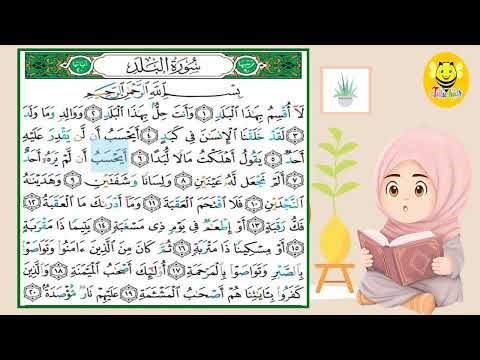 سُورَةُ الْبَلَدِ
بِسْمِ اللَّهِ الرَّحْمَٰنِ الرَّحِيمِ
لَآ أُقْسِمُ بِهَٰذَا ٱلْبَلَدِ ١ وَأَنتَ حِلٌّۢ بِهَٰذَا ٱلْبَلَدِ ٢ وَوَالِدٍ وَمَا وَلَدَ
٣ لَقَدْ خَلَقْنَا ٱلْإِنسَٰنَ فِي كَبَدٍ ٤ أَيَحْسَبُ أَن لَّن يَقْدِرَ عَلَيْهِ
أَحَدٌ ٥ يَقُولُ أَهْلَكْتُ مَالًا لُّبَدًا ٦ أَيَحْسَبُ أَن لَّمْ يَرَهُۥٓ أَحَدٌ
٧ أَلَمْ نَجْعَل لَّهُۥ عَيْنَيْنِ ٨ وَلِسَانًا وَشَفَتَيْنِ ٩ وَهَدَيْنَٰهُ
ٱلنَّجْدَيْنِ ١٠ فَلَا ٱقْتَحَمَ ٱلْعَقَبَةَ ١١ وَمَآ أَدْرَىٰكَ مَا ٱلْعَقَبَةُ ١٢
فَكُّ رَقَبَةٍ ١٣ أَوْ إِطْعَٰمٌ فِي يَوْمٍ ذِي مَسْغَبَةٍ ١٤ يَتِيمًا ذَا مَقْرَبَةٍ
١٥ أَوْ مِسْكِينًا ذَا مَتْرَبَةٍ ١٦ ثُمَّ كَانَ مِنَ ٱلَّذِينَ ءَامَنُوا۟ وَتَوَاصَوْا۟
بِٱلصَّبْرِ وَتَوَاصَوْا۟ بِٱلْمَرْحَمَةِ ١٧ أُو۟لَٰٓئِكَ أَصْحَٰبُ ٱلْمَيْمَنَةِ ١٨ وَٱلَّذِينَ
كَفَرُوا۟ بِـَٔايَٰتِنَا هُمْ أَصْحَٰبُ ٱلْمَشْـَٔمَةِ ١٩ عَلَيْهِمْ نَارٌ مُّؤْصَدَةٌۢ ٢٠